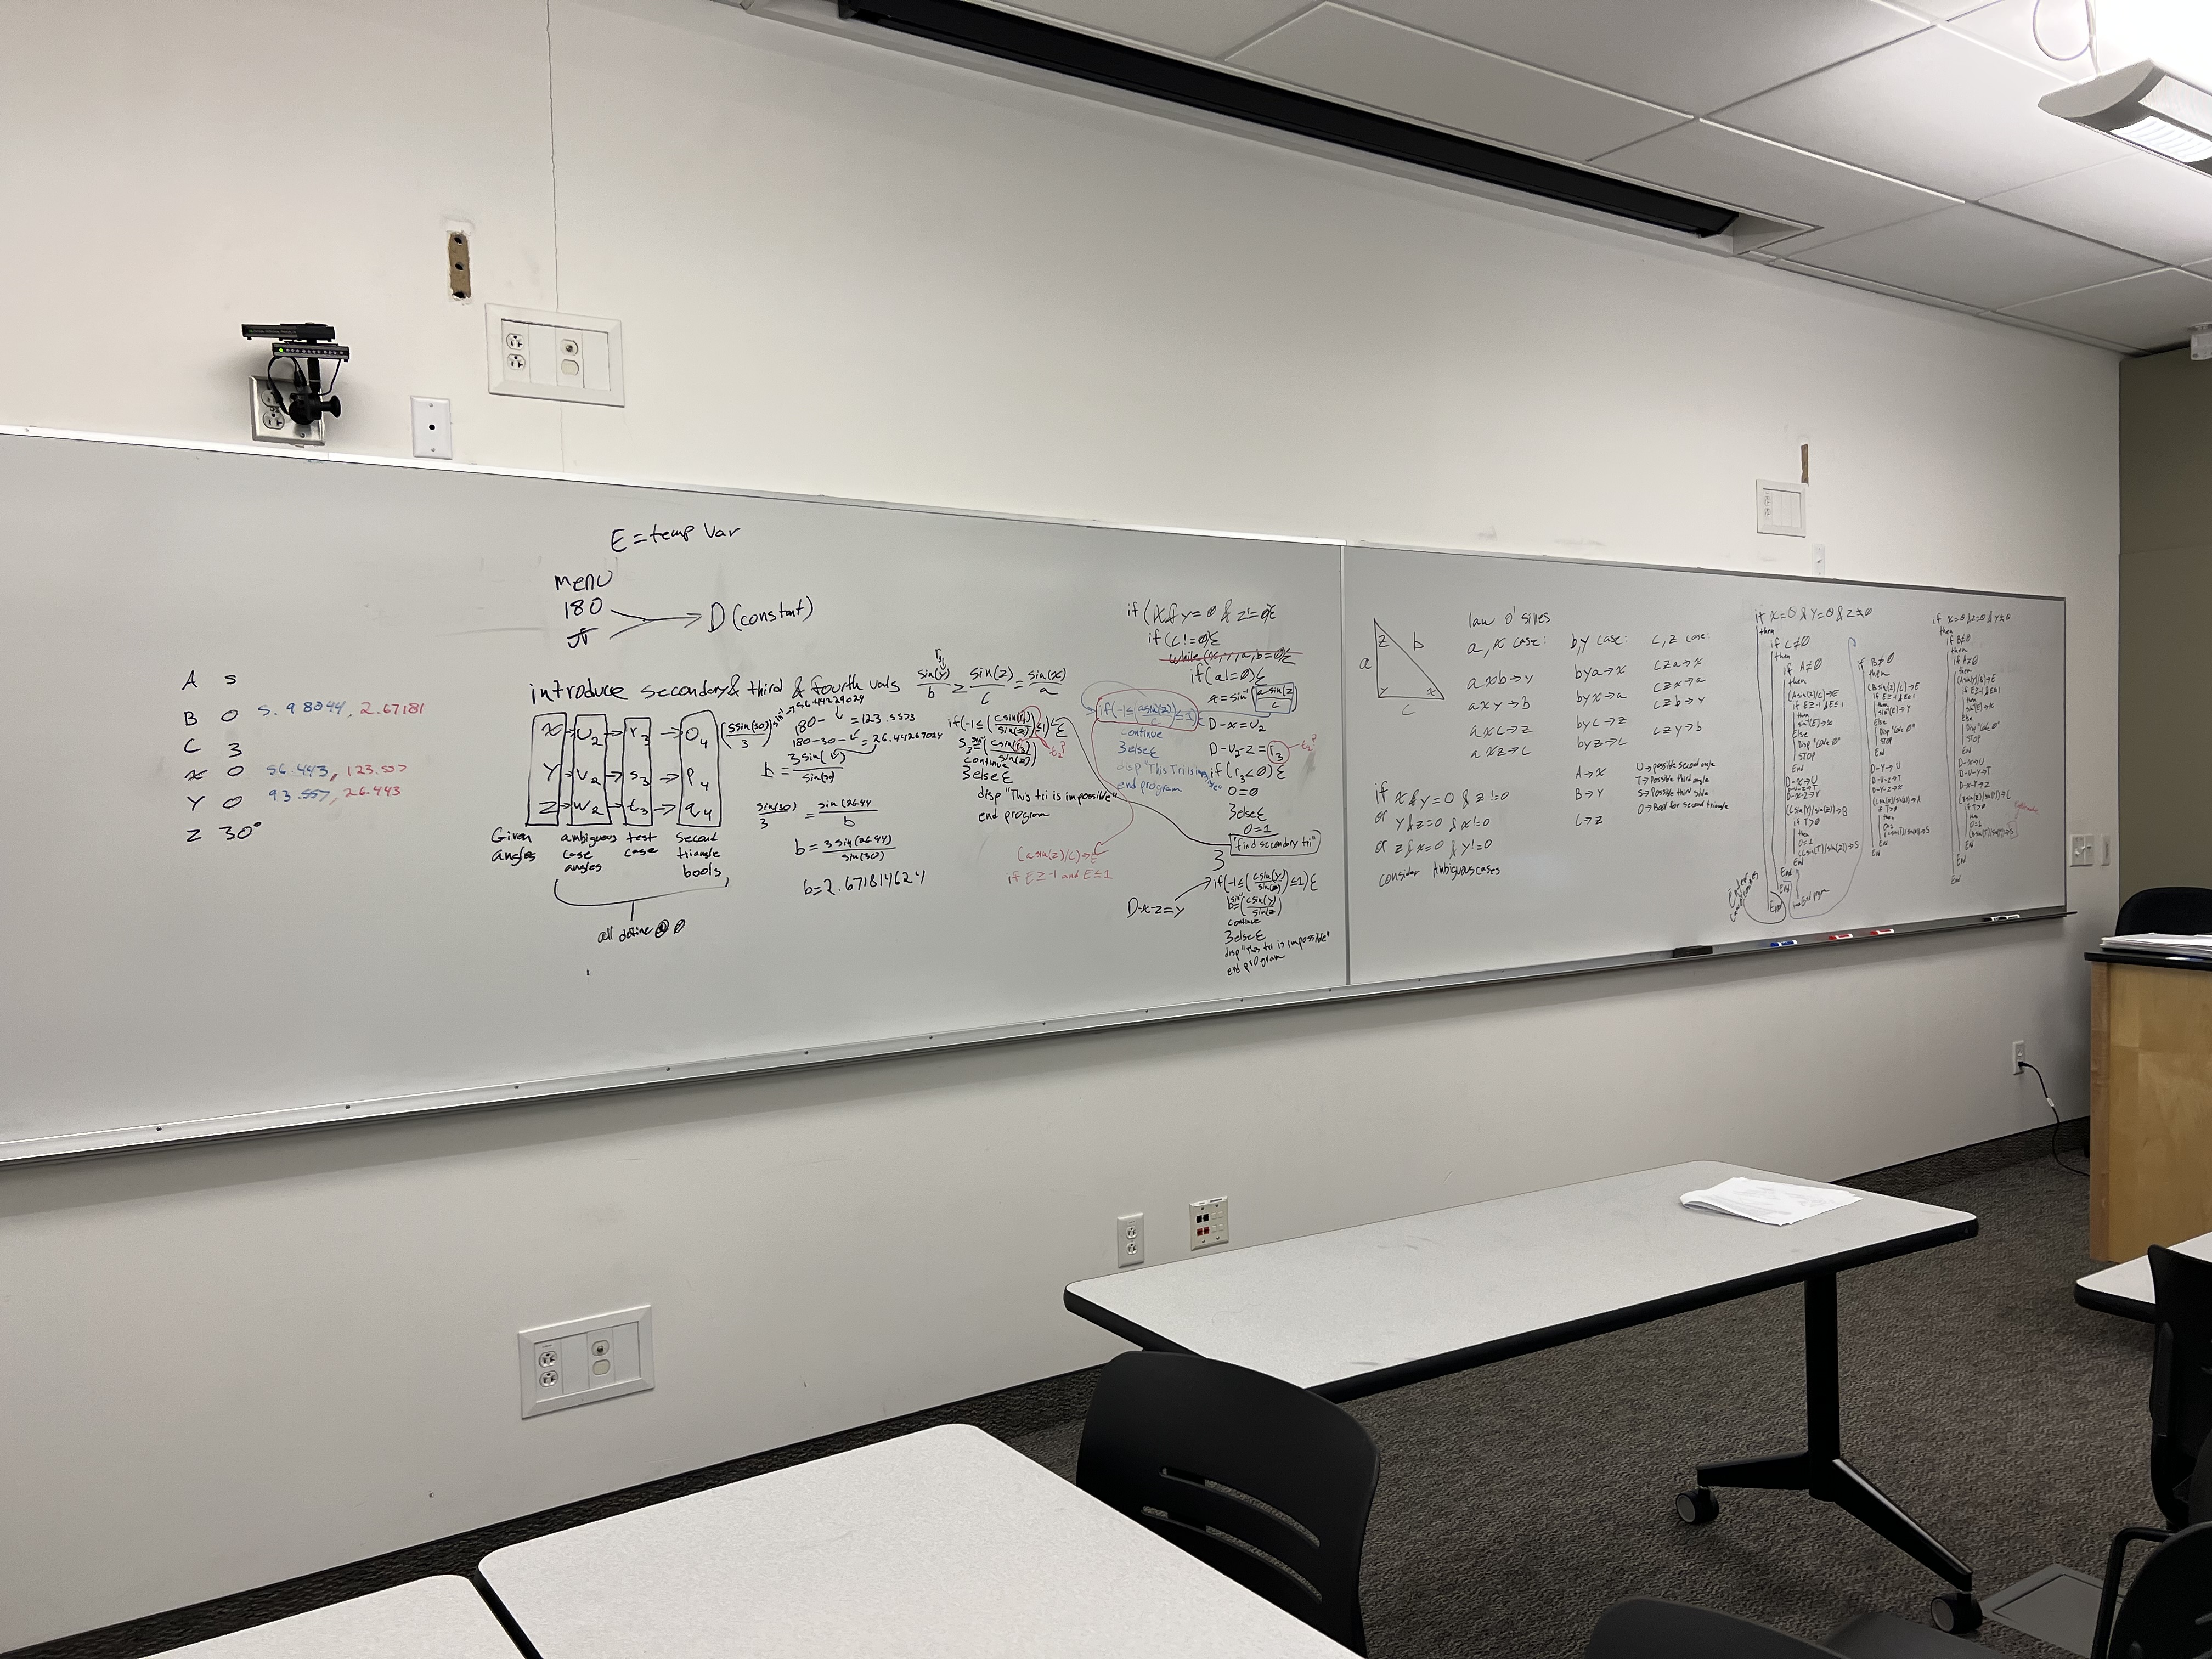 E = temp var
menu
180
π
D (constant)
A 5
B 0 5.98044, 2.67181
C 3
x 0 56.443, 123.557
Y 0 93.557, 26.443
Z 30°
introduce secondary & third & fourth vals
x → u₂ → r₃ → o₄
Y → v₂ → s₃ → p₄
Z → w₂ → t₃ → q₄
Given angles
ambiguous case angles
test case
second triangle bools
all define @ 0
(5sin(30)/3) sin⁻¹ → 56.44269024
180- = 123.5573
180-30- = 26.44269024
b = 3sin( )/sin(30)
sin(30)/3 = sin(26.44)/b
b = 3sin(26.44)/sin(30)
b = 2.671814624
r₃
sin(Y)/b = sin(Z)/c = sin(x)/a
if(-1≤(csin(r₃)/sin(z))≤1){
t₂?
continue
}else{
disp "This tri is impossible"
end program
if (x & y = 0 & z != 0){
if (c != 0){
while (x, y, a, b = 0){
if (a != 0){
x = sin⁻¹(a sin(z)/c)
if(-1≤(asin(z)/c)≤1){
continue
}else{
disp "This Tri is
end program
D-x=u₂
D-u₂-z=r₃
t₂?
if (r₃<0){
0=0
}else{
0=1
"find secondary tri"
}
(asin(z)/c)→E
if E≥-1 and E≤1
D-x-z=y
if(-1≤(csin(y)/sin(z))≤1){
b=(csin(y)/sin(z))
continue
}else{
disp "this tri is impossible"
end program
z b
a
y x
c
law o' sines
a, x case: b, y case: c, z case:
axb→y bya→x cza→x
axy→b byx→a czx→a
axc→z byc→z czb→y
axz→c byz→c czy→b
A→x
B→Y
C→z
U→possible second angle
T→possible third angle
S→possible third side
O→Bool for second triangle
if x & y = 0 & z != 0
or y & z = 0 & x != 0
or z & x = 0 & y != 0
consider Ambiguous cases
if x=0 & Y=0 & Z≠0
then
if C≠0
then
if A≠0
then
(Asin(Z)/C)→E
if E≥-1 & E≤1
then
sin⁻¹(E)→x
Else
STOP
End
D-x→U
D-U-Z→T
D-x-Z→Y
(Csin(Y)/sin(Z))→B
if T>0
then
0=1
(Csin(T)/sin(Z))→S
End
End
End
End
if B≠0
then
(Bsin(Z)/C)→E
if E≥-1 & E≤1
then
sin⁻¹(E)→Y
Else
STOP
End
D-Y→U
D-U-Z→T
D-Y-Z→x
(Csin(x)/sin(Z))→A
if T>0
then
End
End
if x=0 & Z=0 & Y≠0
then
if B≠0
then
if A≠0
then
(Asin(Y)/B)→E
if E≥-1 & E≤1
then
sin⁻¹(E)→x
Else
STOP
End
D-x→U
D-U-Y→T
D-x-Y→Z
(Bsin(Z)/sin(Y))→C
if T>0
then
0=1
(Bsin(T)/sin(Y))→S
End
End
End
End